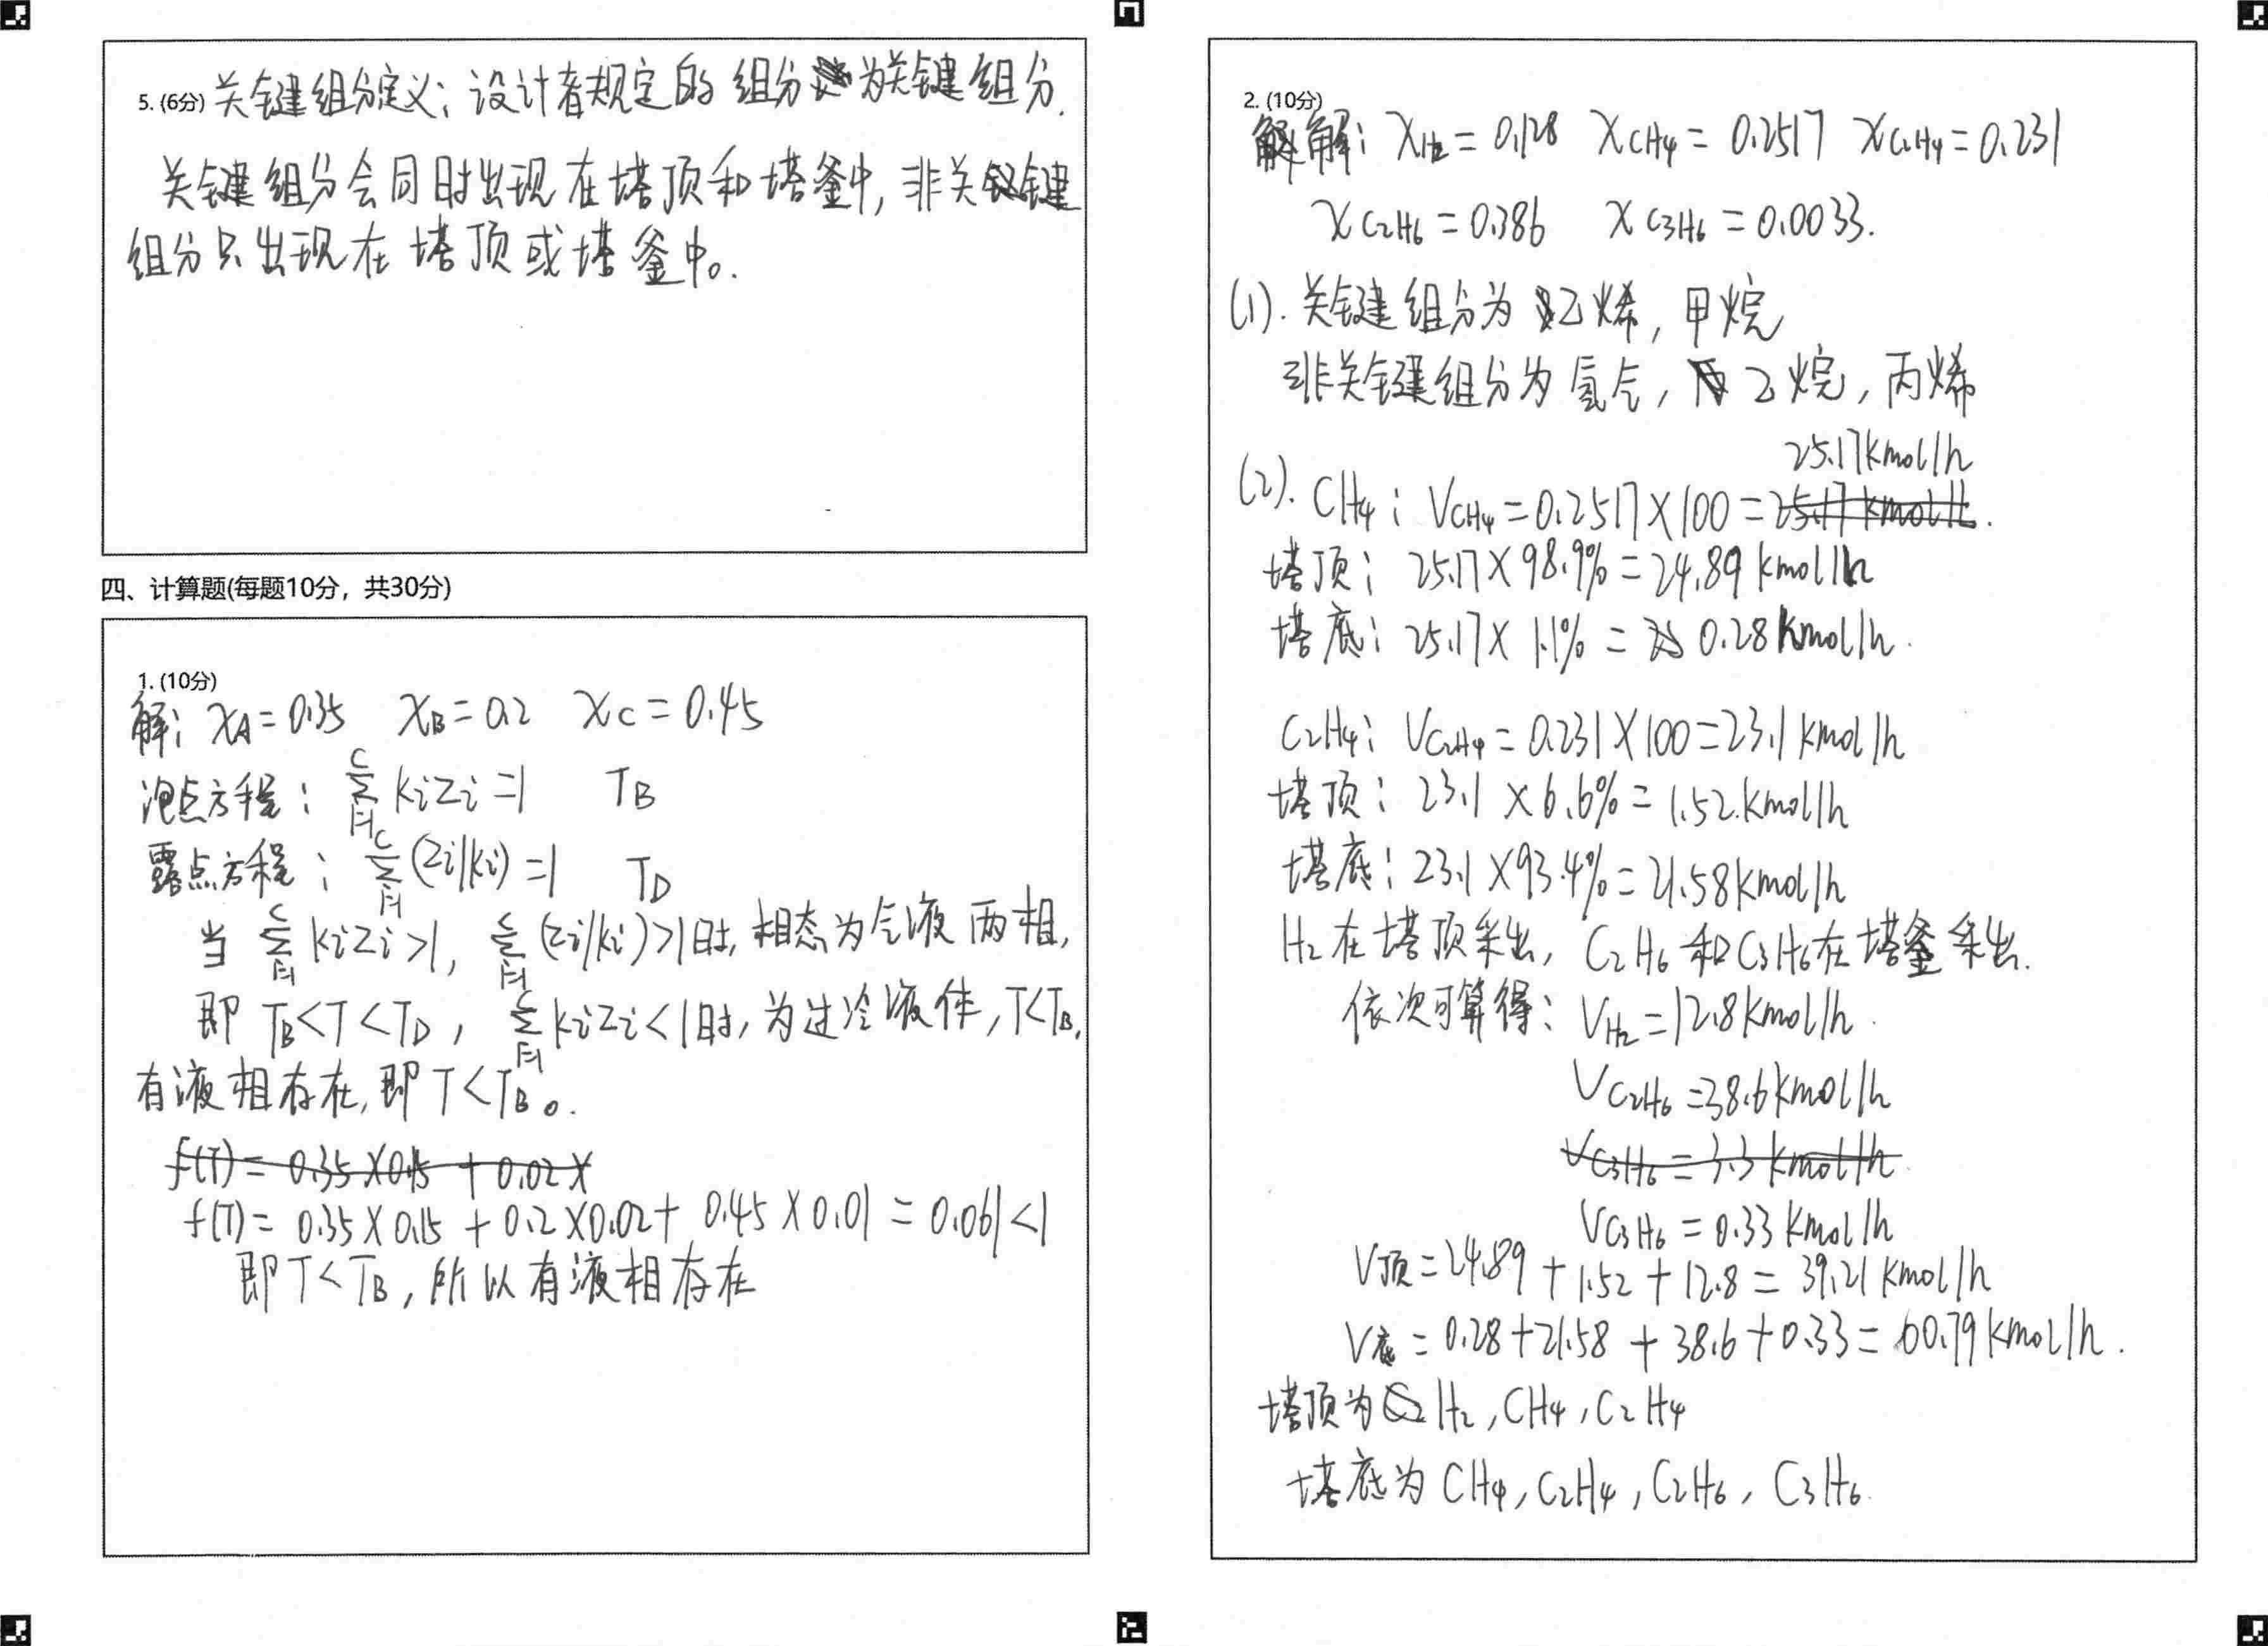 5. (6分) 关键组分定义：设计者规定的组分为关键组分.
关键组分会同时出现在塔顶和塔釜中, 非关键
组分只出现在塔顶或塔釜中。
四、计算题(每题10分，共30分)
1. (10分)
解: XA=0.35 XB=0.2 XC=0.45
泡点方程: ∑(i=1→C) KiZi=1 TB
露点方程: ∑(i=1→C) (Zi/Ki)=1 TD
当 ∑(i=1→C) KiZi>1, ∑(i=1→C) (Zi/Ki)>1时, 相态为气液两相,
即 TB<T<TD, ∑(i=1→C) KiZi<1时, 为过冷液体, T<TB,
有液相存在, 即 T<TB。
f(T)= 0.35×0.15 + 0.02×
f(T)= 0.35×0.15 + 0.2×0.02+ 0.45×0.01 = 0.061<1
即T<TB, 所以有液相存在
2. (10分)
解: XH2=0.128 XCH4=0.2517 XC2H4=0.231
XC2H6=0.386 XC3H6=0.0033.
(1). 关键组分为乙烯, 甲烷
非关键组分为氢气, 乙烷, 丙烯
25.17kmol/h
(2). CH4: VCH4=0.2517×100=25.17 kmol/h.
塔顶: 25.17×98.9%=24.89 kmol/h
塔底: 25.17×1.1% = 0.28 kmol/h.
C2H4: VC2H4=0.231×100=23.1 kmol/h
塔顶: 23.1×6.6%=1.52.kmol/h
塔底: 23.1×93.4%=21.58kmol/h
H2在塔顶采出, C2H6和C3H6在塔釜采出.
依次可算得: VH2=12.8kmol/h.
VC2H6=38.6kmol/h
VC3H6=3.3 kmol/h
VC3H6=0.33 kmol/h
V顶=24.89+1.52+12.8=39.21 kmol/h
V底=0.28+21.58+38.6+0.33=60.79kmol/h.
塔顶为 H2, CH4, C2H4
塔底为 CH4, C2H4, C2H6, C3H6.